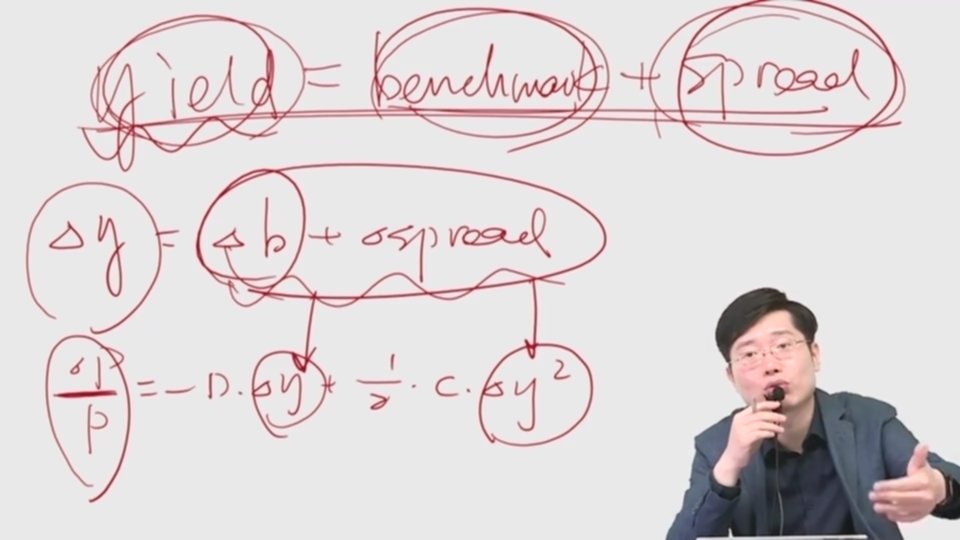 yield = benchmark + spread
Δy = Δb + Δspread
ΔP/P = - D. Δy + 1/2 . C. Δy²